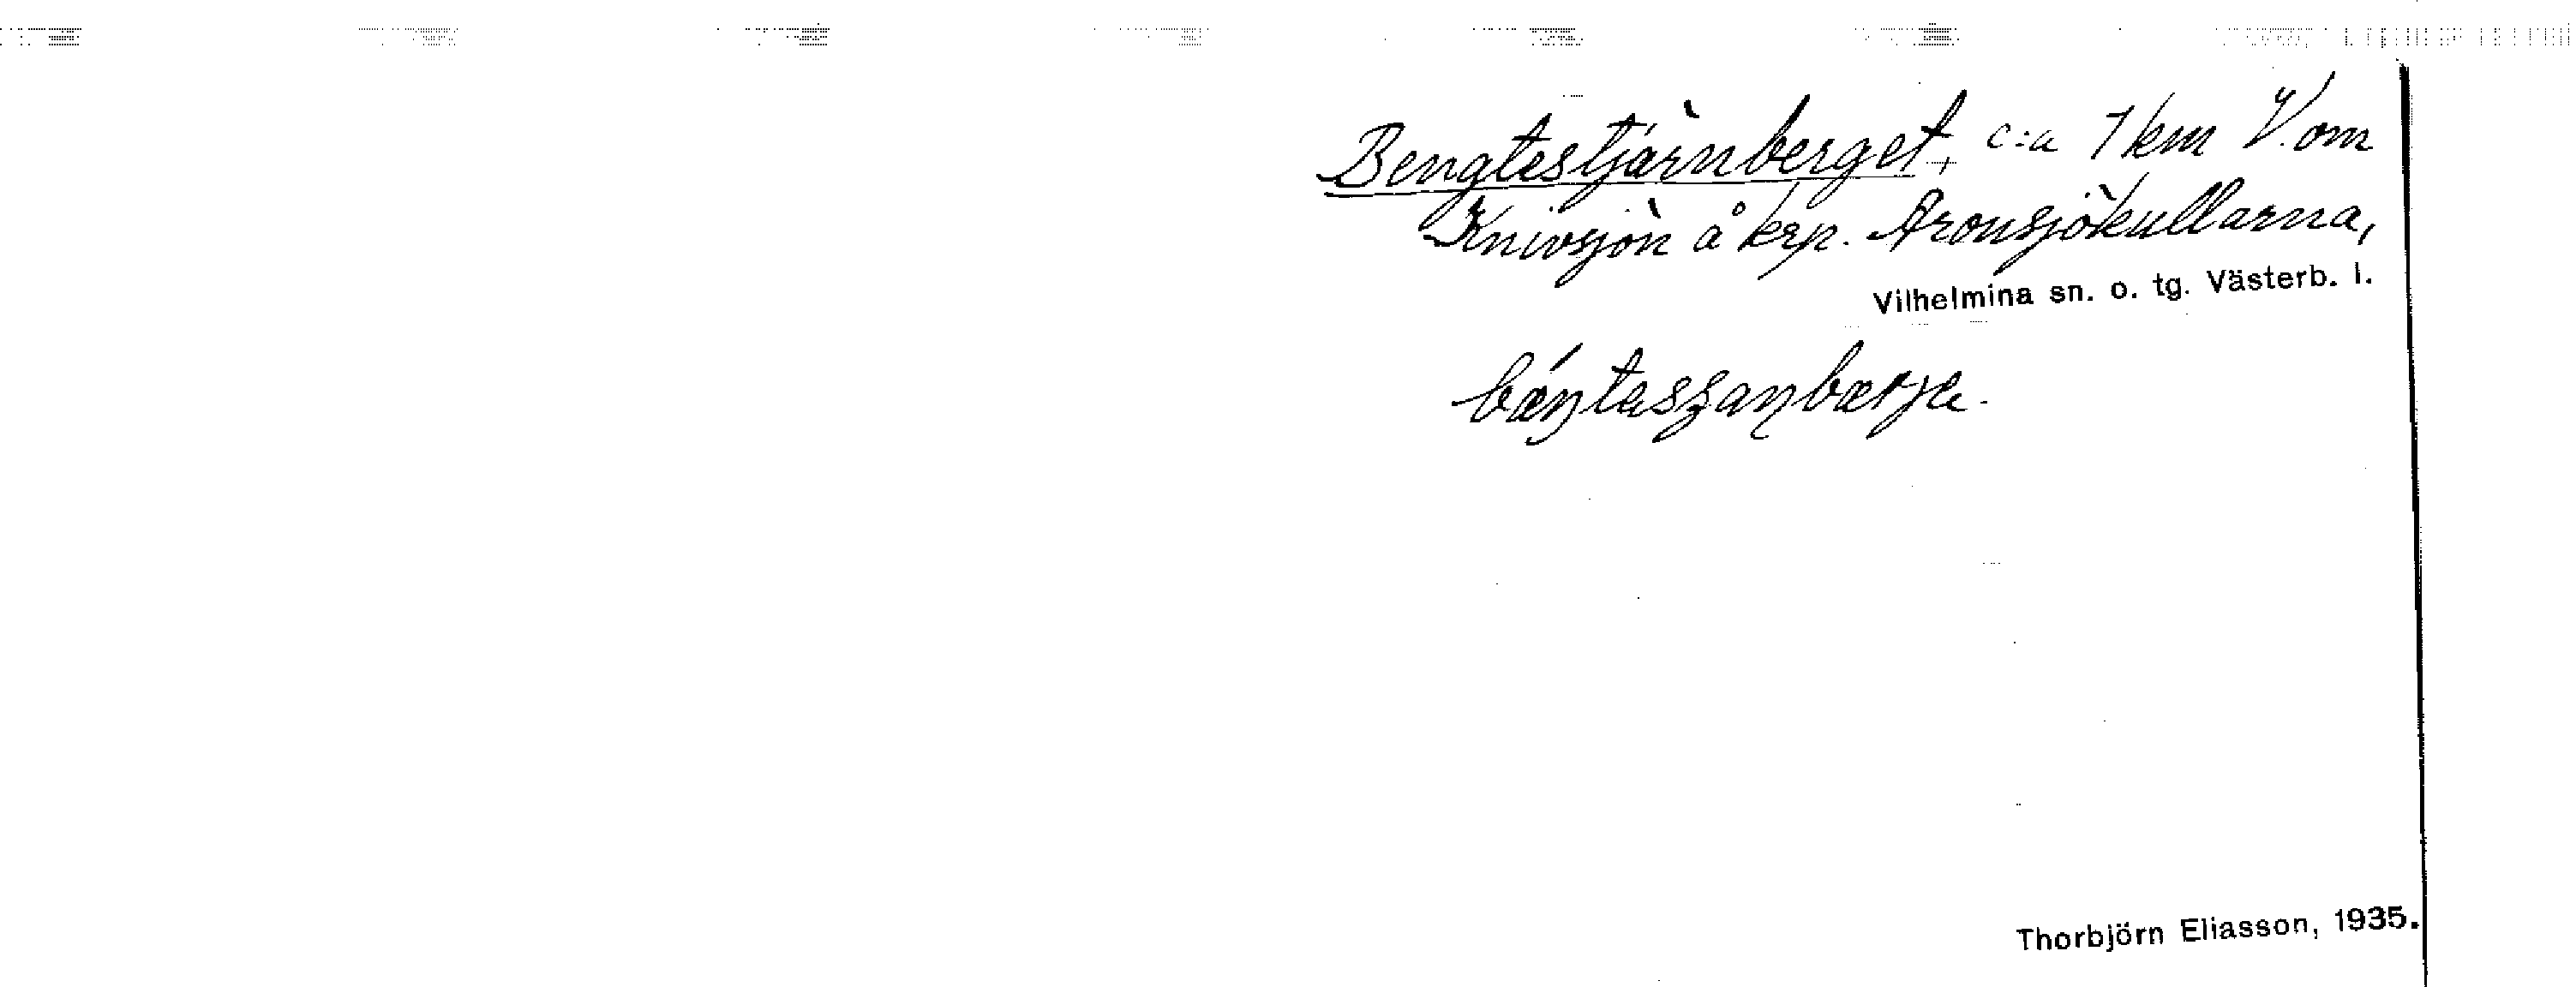 Bengtestjärnberget, c:a 1 km V. om
Knivsjön å krp. Aronsjökullarna,
Vilhelmina sn. o. tg. Västerb. l.
Thorbjörn Eliasson, 1935.